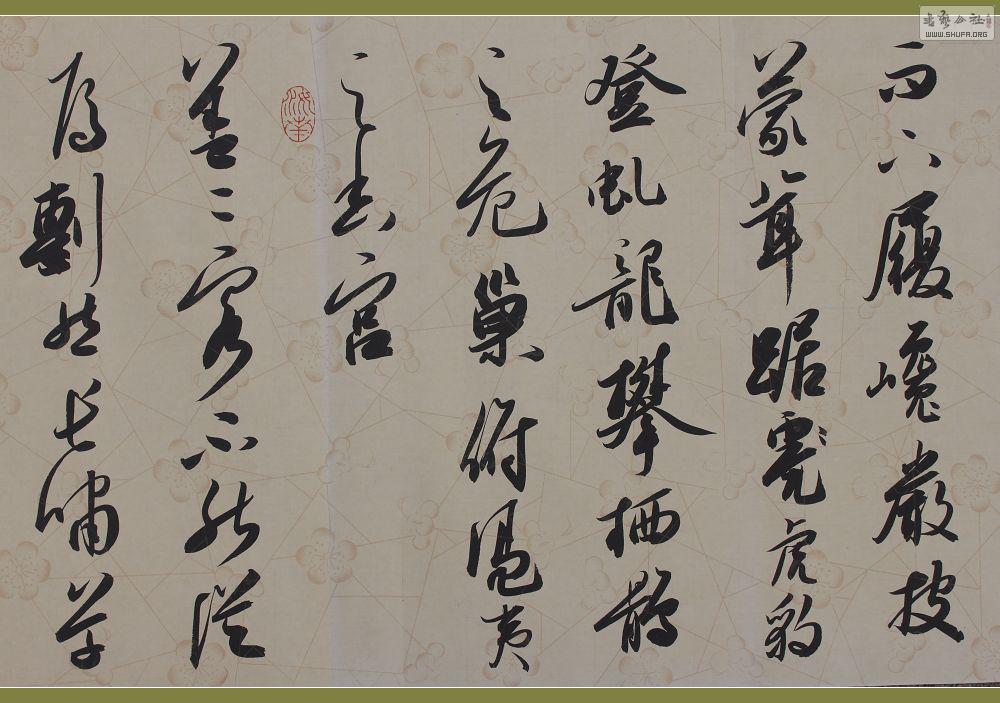 而上履巉巖披
蒙茸踞虎豹
登虬龍攀栖鶻
之危巢俯馮夷
之幽宮
蓋二客不能從
焉劃然長嘯草
书艺公社
WWW.SHUFA.ORG